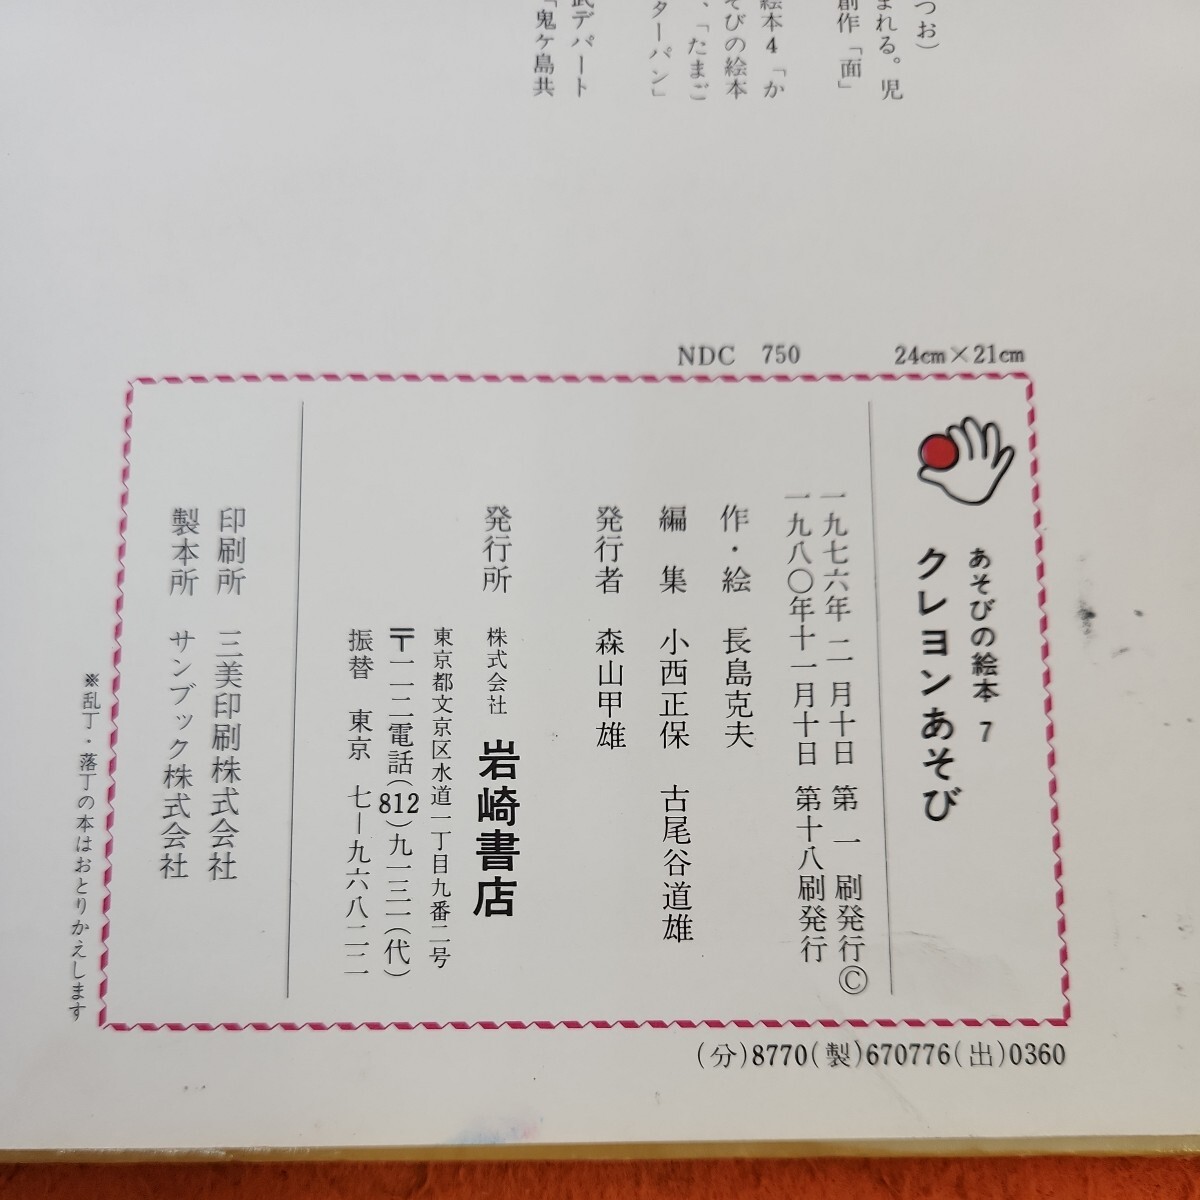 つお)
まれる。児
創作「面」
絵本4「か
そびの絵本
、「たまご
ターパン」
武デパート
「鬼ヶ島共
NDC 750
24cm×21cm
あそびの絵本 7
クレヨンあそび
一九七六年 二月十日 第一 刷発行©
一九八〇年十一月十日 第十八刷発行
作・絵 長島克夫
編 集 小西正保 古尾谷道雄
発行者 森山甲雄
発行所 株式会社 岩崎書店
東京都文京区水道一丁目九番二号
〒一一二電話(812)九一三一(代)
振替 東京 七ー九六八二二
印刷所 三美印刷株式会社
製本所 サンブック株式会社
※乱丁・落丁の本はおとりかえします
(分)8770(製)670776(出)0360